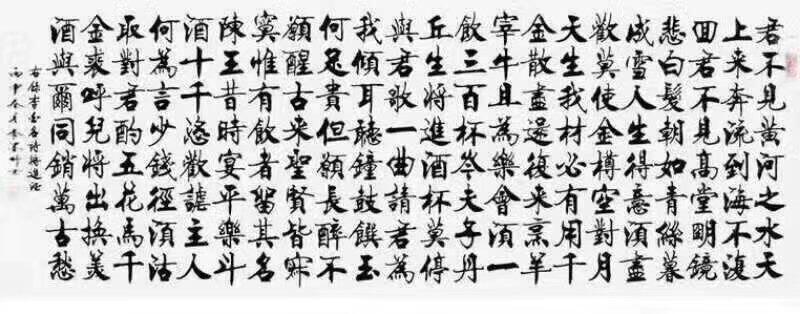 君不見黃河之水天
上来奔流到海不復
回君不見高堂明鏡
悲白髮朝如青絲暮
成雪人生得意須盡
歡莫使金樽空對月
天生我材必有用千
金散盡還復来烹羊
宰牛且為樂會須一
飲三百杯岑夫子丹
丘生將進酒杯莫停
與君歌一曲請君為
我傾耳聽鐘鼓饌玉
何足貴但願長醉不
願醒古来聖賢皆寂
寞惟有飲者留其名
陳王昔時宴平樂斗
酒十千恣歡謔主人
何為言少錢徑須沽
取對君酌五花馬千
金裘呼兒將出換美
酒與爾同銷萬古愁
右錄李白名詩將進酒
丙申